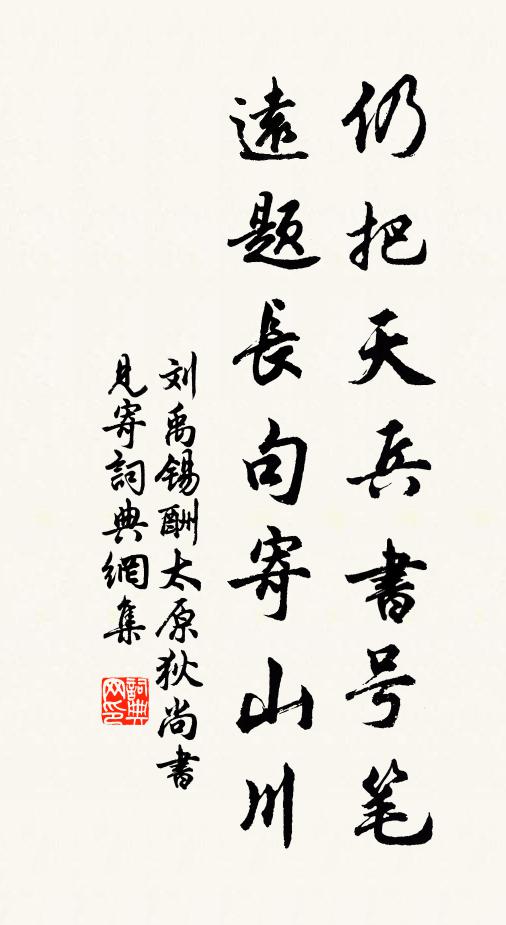 仍把天兵書号笔
遠题長句寄山川
刘禹锡酬太原狄尚書
見寄詞典網集
詞典
网印